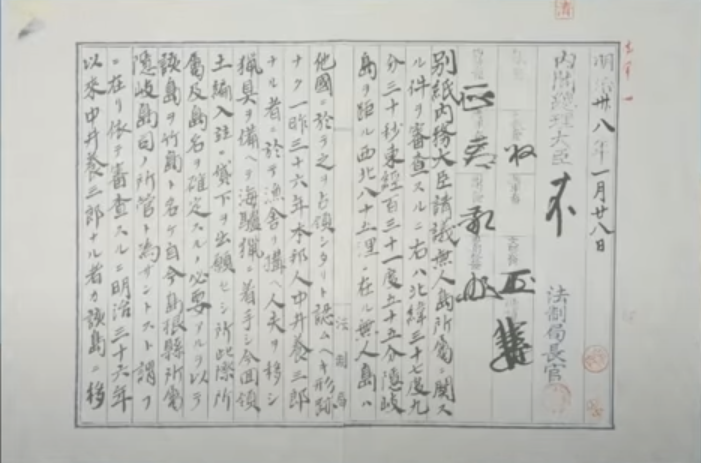 明治卅八年一月廿八日
内閣總理大臣
法制局長官
別紙内務大臣請議無人島所属ニ関ス
ル件ヲ審査スルニ右ハ北緯三十七度九
分三十秒東経百三十一度五十五分隠岐
島ヲ距ル西北八十五浬ニ在ル無人島ハ
他國ニ於テ之ヲ占領シタリト認ムヘキ形跡
法制局
ナク一昨三十六年本邦人中井養三郎
ナル者ニ於テ漁舎ヲ構ヘ人夫ヲ移シ
猟具ヲ備ヘテ海驢猟ニ着手シ今回領
土編入並ニ貸下ヲ出願セシ所此際所
属及島名ヲ確定スルノ必要アルヲ以テ
該島ヲ竹島ト名ケ自今島根縣所属
隠岐島司ノ所管ト為サントスト謂フ
ニ在リ依テ審査スルニ明治三十六年
以来中井養三郎ナル者カ該島ニ移